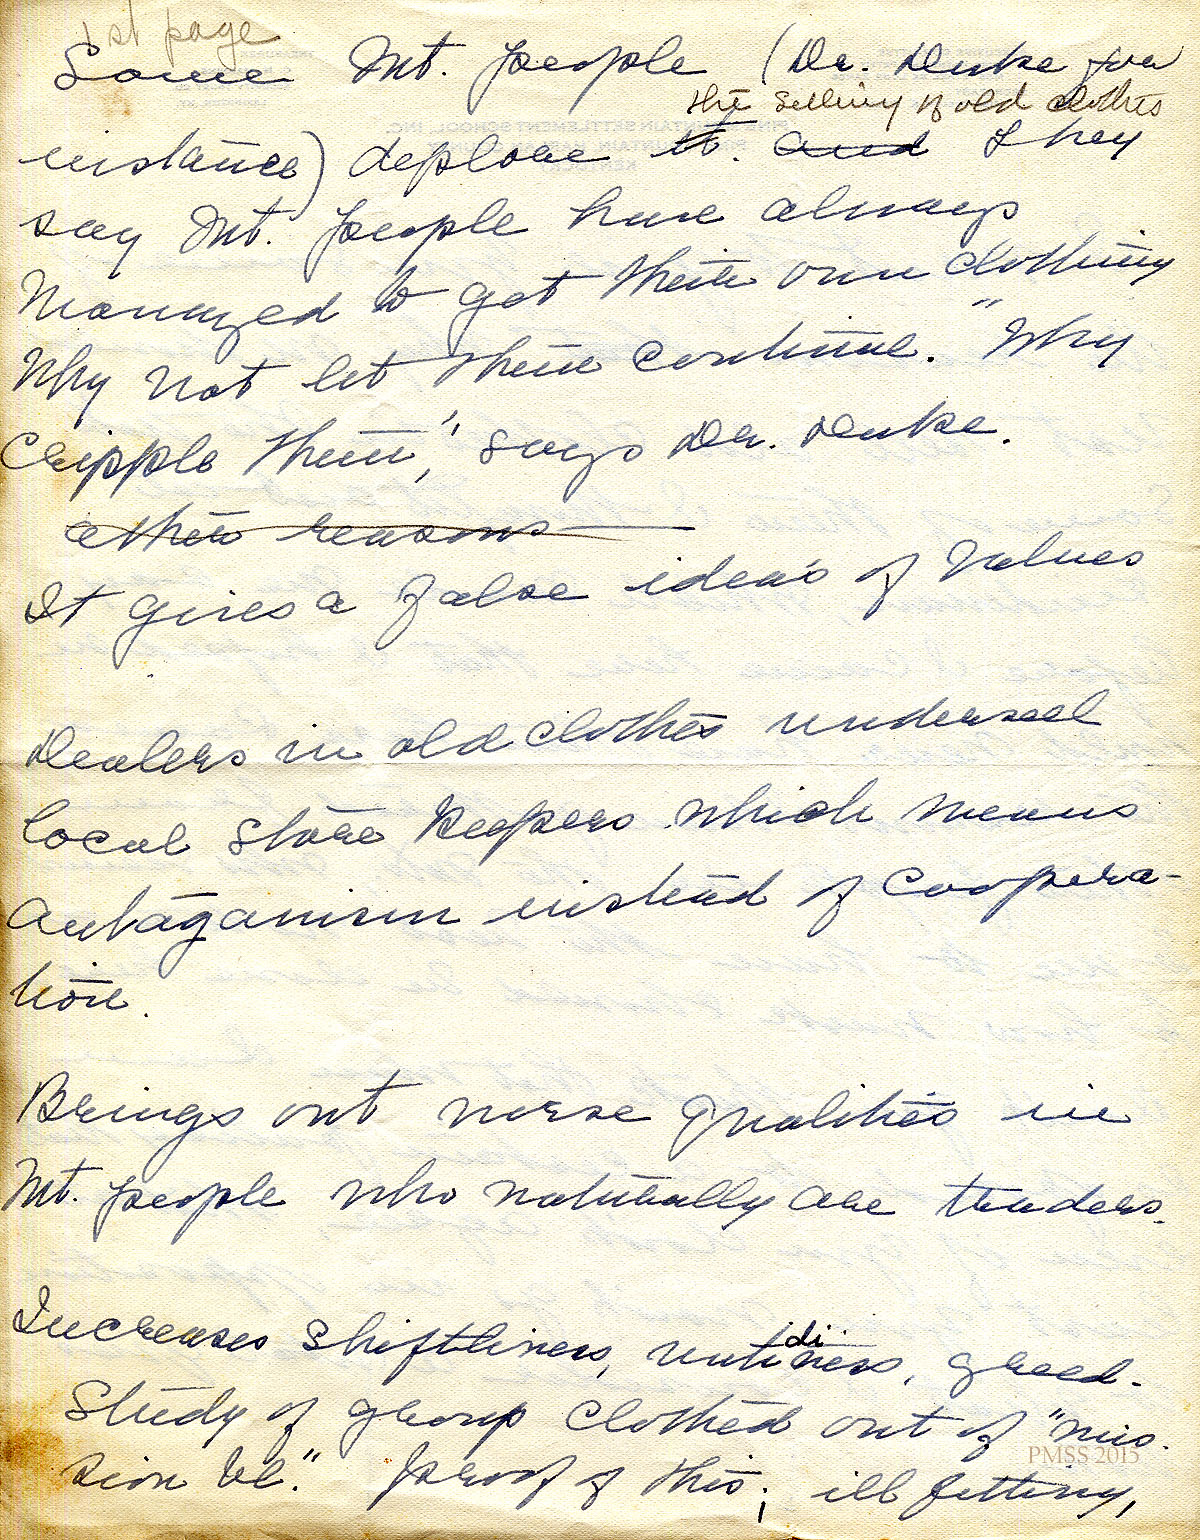 1st page
Some Mt. people (Dr. Duke for
the selling of old clothes
instance) deplore it. and They
say Mt. people have always
managed to get their own clothing
Why not let them continue. "Why
cripple them", says Dr. Duke.
other reasons
It gives a false idea's of values
Dealers in old clothes undersell
local store keepers which means
antaganism instead of coopera-
tion.
Brings out worse qualities in
Mt. people who naturally are traders.
di
Increases shiftliness, untidiness, greed.
Study of group clothed out of "mis-
sion bl." Proof of this; ill fitting,
PMSS 2015